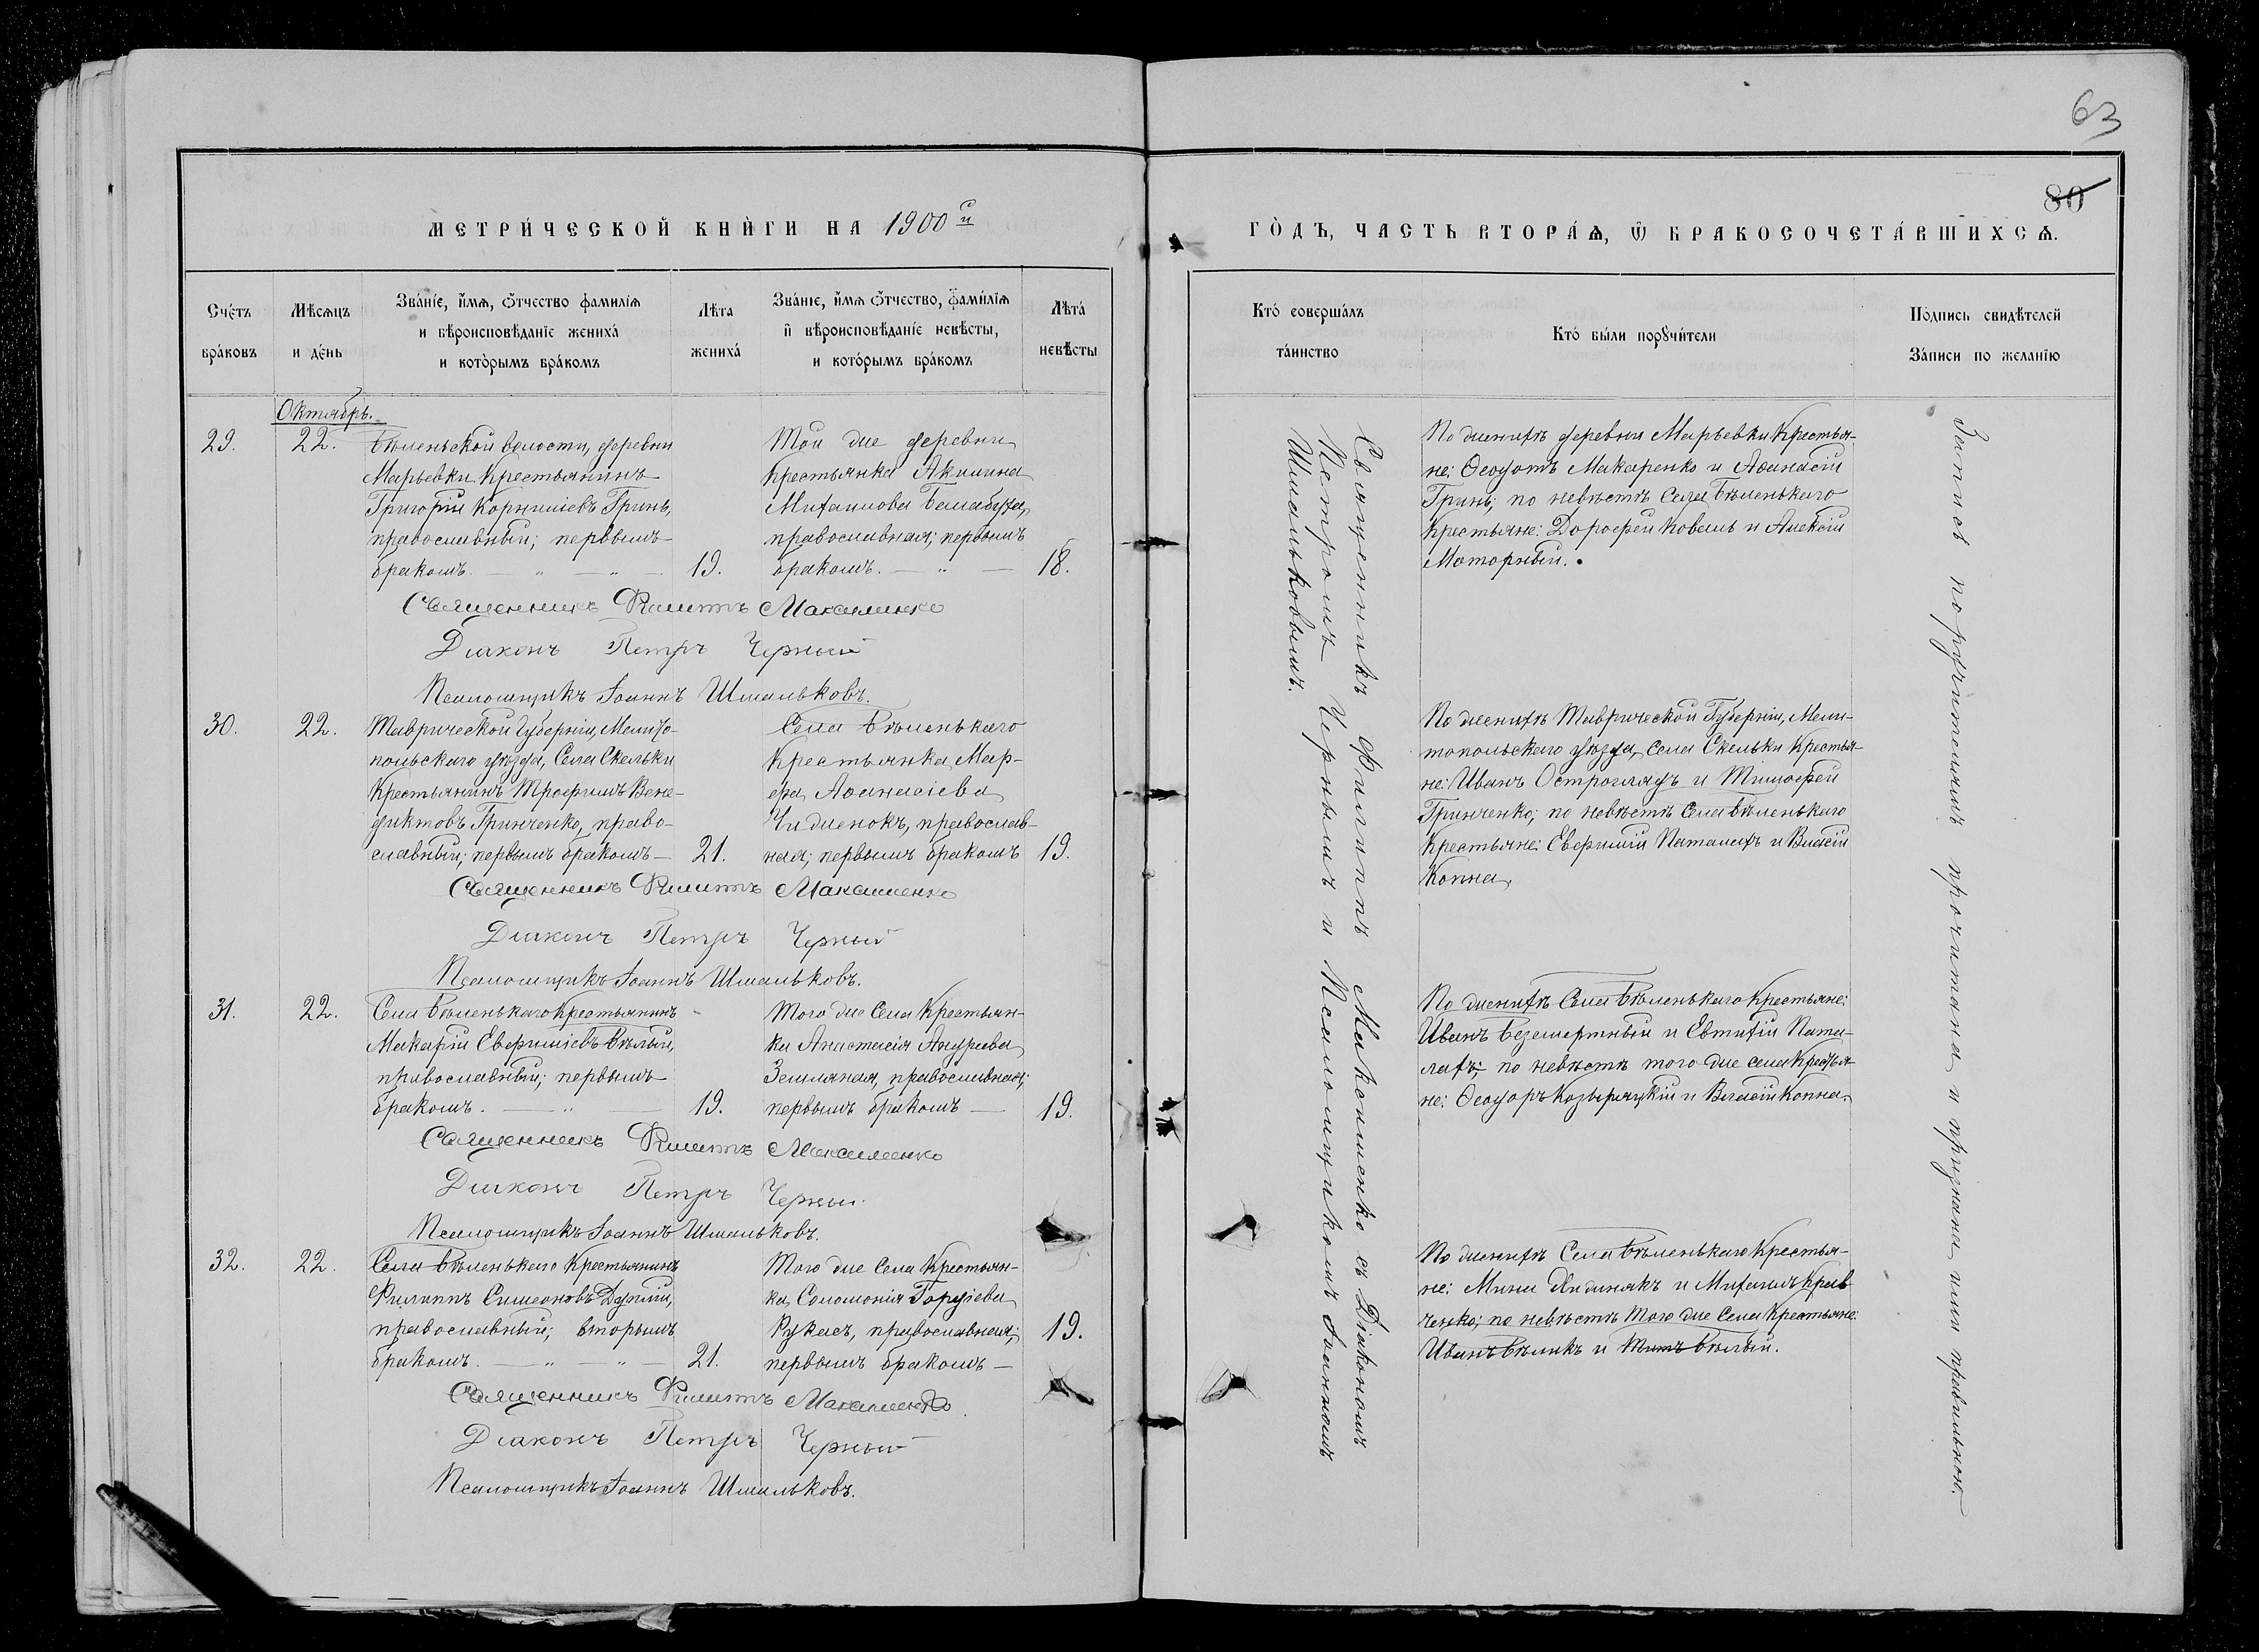 63
80
МЕТРИ́ЧЕСКОЙ КНЍГИ НА 1900й
ГО̀ДЪ, ЧАСТЬ ВТОРА́Ѧ, Ѿ БРАКОСОЧЕТА́ВШИХСѦ.
Сче́тъ
бра́ковъ
Мѣсѧцъ
и де́нь
Зва́нїе, и́мѧ, ѻ́тчество фамилїѧ
и вѣроисповѣданїе жениха́
и кото̀рымъ бра́комъ
Лѣта
жениха́
Зва́нїе, и́мѧ ѻ́тчество, фами́лїѧ
и вѣроисповѣ́данїе невѣсты,
и кото́рымъ бра́комъ
Лѣта́
невѣсты
Кто́ совершáлъ
та́инство
Кто́ бы́ли порꙋчи́тели
По́дпись свидѣтелей
За́писи по желанїю
Октябрь.
29.
22.
Бѣленьской волости, деревни
Марьевки Крестьянинъ
Григорій Корниліевъ Гринь,
православный; первымъ
бракомъ. — „ — „ —
19.
Той же деревни
крестьянка Акилина
Михаилова
православная; первымъ
бракомъ. — „ —
18.
Священникъ Филиппъ Максименко
Діаконъ Петръ Черный
Псаломщикъ Іоаннъ Шмальковъ.
30.
22.
Таврической Губерніи, Мелито-
польскаго уѣзда, Села Скельки
Крестьянинъ Трофимъ Вене-
диктовъ Гринченко, право-
славный; первымъ бракомъ —
21.
Села Бѣленькаго
Крестьянка Мар-
фа Аѳанасіева
православ-
ная; первымъ бракомъ
19.
Священникъ Филиппъ Максименко
Діаконъ Петръ Черный
Псаломщикъ Іоаннъ Шмальковъ.
31.
22.
Села Бѣленькаго Крестьянинъ
Макарій Евфиміевъ Бѣлый,
православный; первымъ
бракомъ. — „ —
19.
Того же Села Крестьян-
ка Анастасія Андреева
Земляная, православная;
первымъ бракомъ —
19.
Священникъ Филиппъ Максименко
Діаконъ Петръ Черный
Псаломщикъ Іоаннъ Шмальковъ.
32.
22.
Села Бѣленькаго Крестьянинъ
Филиппъ Симеоновъ
православный; вторымъ
бракомъ. — „ — „ —
21.
Того же Села Крестьян-
ка, Соломонія Гордіева
Рукасъ, православная;
первымъ бракомъ —
19.
Священникъ Филиппъ Максименко
Діаконъ Петръ Черный
Псаломщикъ Іоаннъ Шмальковъ.
Священникъ Филиппъ Максименко съ Діакономъ
Петромъ Чернымъ и Псаломщикомъ Іоанномъ
Шмальковымъ.
По женихѣ деревни Марьевки Крестья-
не: Ѳеодотъ Макаренко и Аѳанасій
Гринь; по невѣстѣ Села Бѣленькаго
Крестьяне: Дорофей Коваль и Алексій
Моторный.
По женихѣ Таврической Губерніи, Мели-
топольскаго уѣзда, села Скельки Крестья-
не: Иванъ Остроглядъ и Тимофей
Гринченко; по невѣстѣ Села Бѣленькаго
Крестьяне: Евфимій Паталахъ и Власій
Копна.
По женихѣ Села Бѣленькаго Крестьяне:
Иванъ Безсмертный и Евтихій Пата-
лахъ; по невѣстѣ того же села Крестья-
не: Ѳеодоръ Козыряцкій и Власій Копна.
По женихѣ Села Бѣленькаго Крестья-
не: Мина и Михаилъ Крав
ченко; по невѣстѣ того же Села Крестьяне:
Иванъ Бѣликъ и Титъ Бѣлый.
Запись поручителямъ прочитана и признана ими правильною.